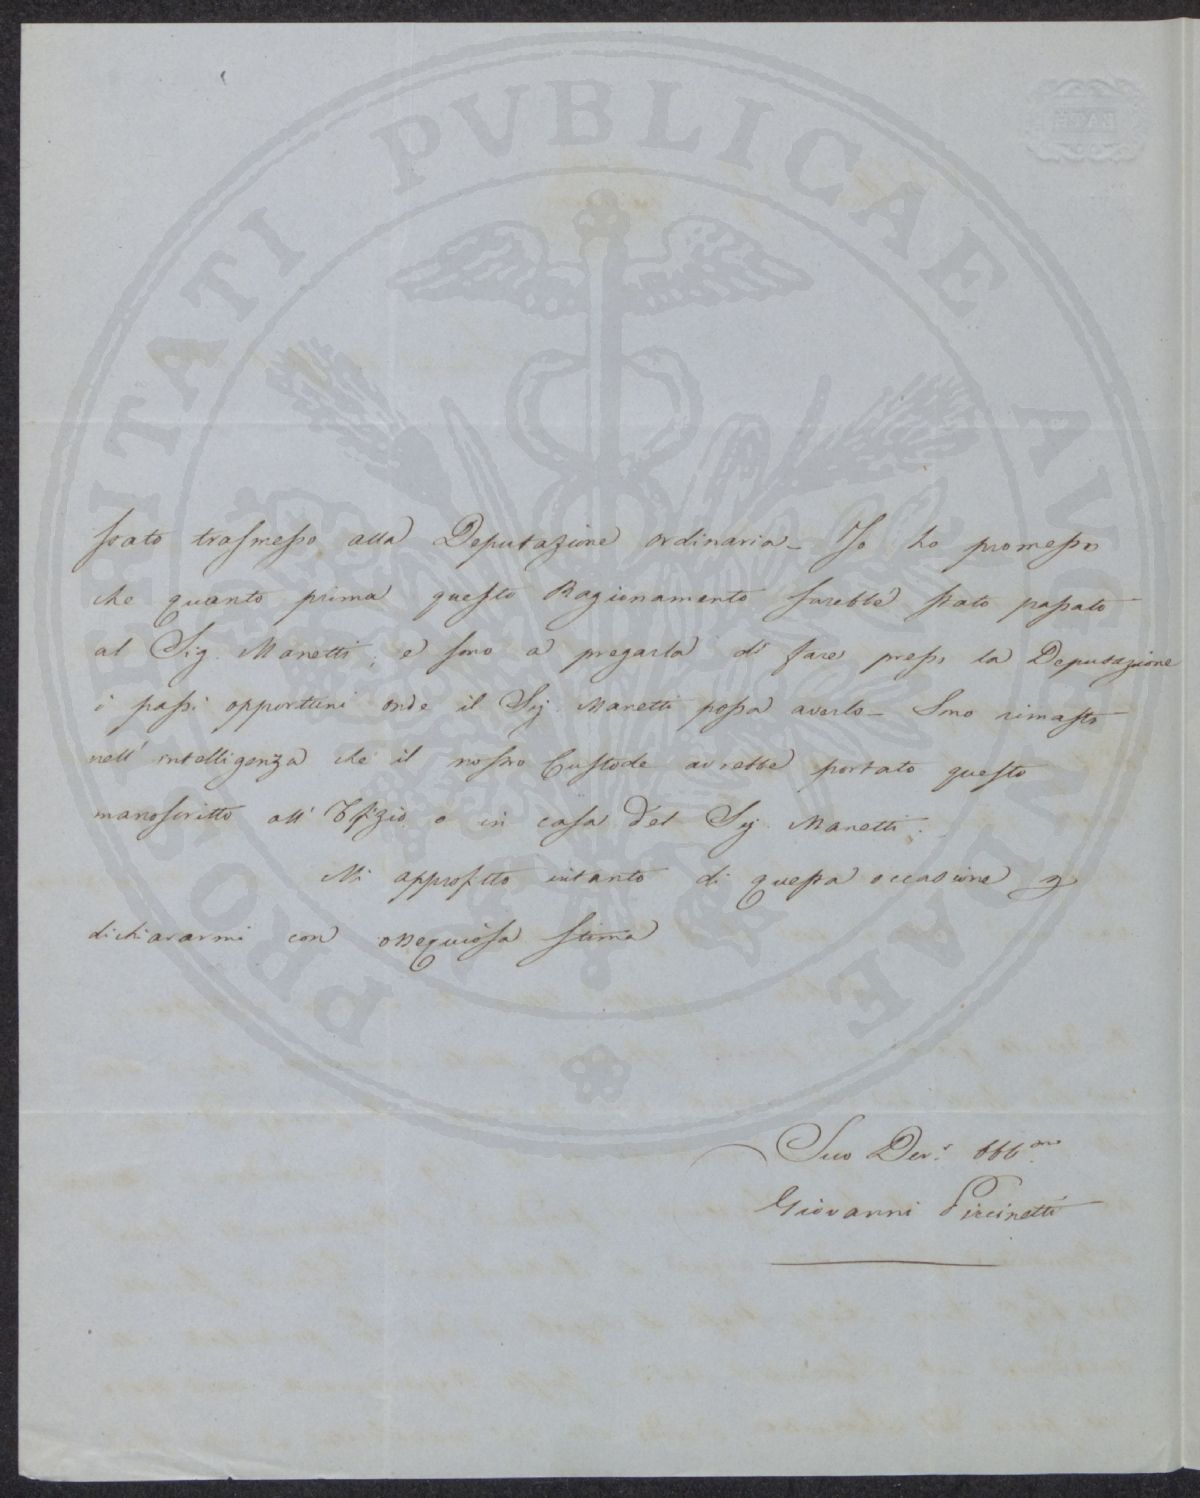 PROSPERITATI PVBLICAE AVGENDAE
BATH
stato trasmesso alla Deputazione ordinaria_ Io ho promesso
che quanto prima questo Ragionamento sarebbe stato passato
al Sig. Manetti; e sono a pregarla di fare presso la Deputazione
i passi opportuni onde il Sig. Manetti possa averlo_ Sono rimasto
nell' intelligenza che il nostro Custode avrebbe portato questo
manoscritto all' Ufizio o in casa del Sig. Manetti.
Mi approfitto intanto di questa occasione p
dichiararmi con ossequiosa stima
Suo Dev.º Obb.mo
Giovanni Piccinetti